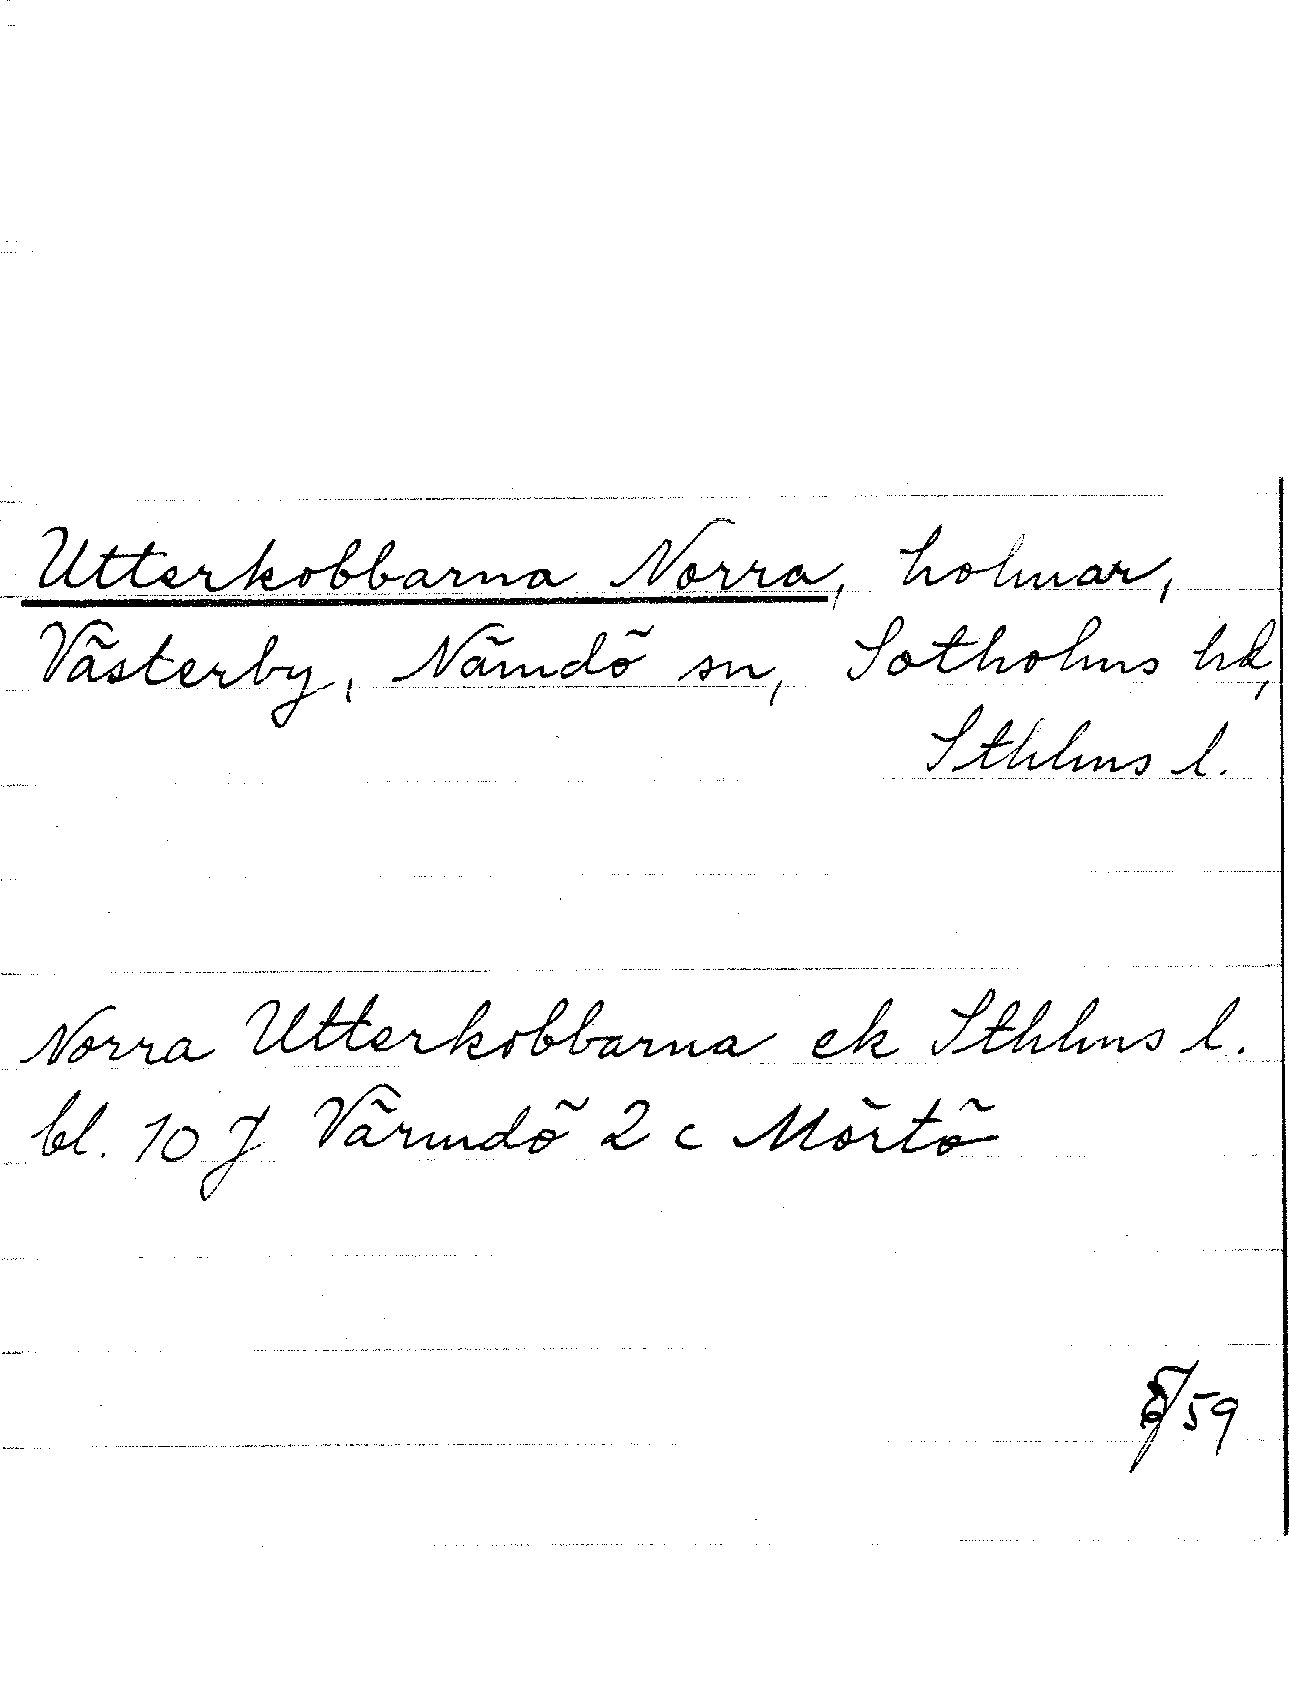 Utterkobbarna Norra, holmar,
Västerby, Nämdö sn, Sotholms hd,
Sthlms l.
Norra Utterkobbarna ek Sthlms l.
bl. 10 J Värmdö 2 c Mörtö
/59